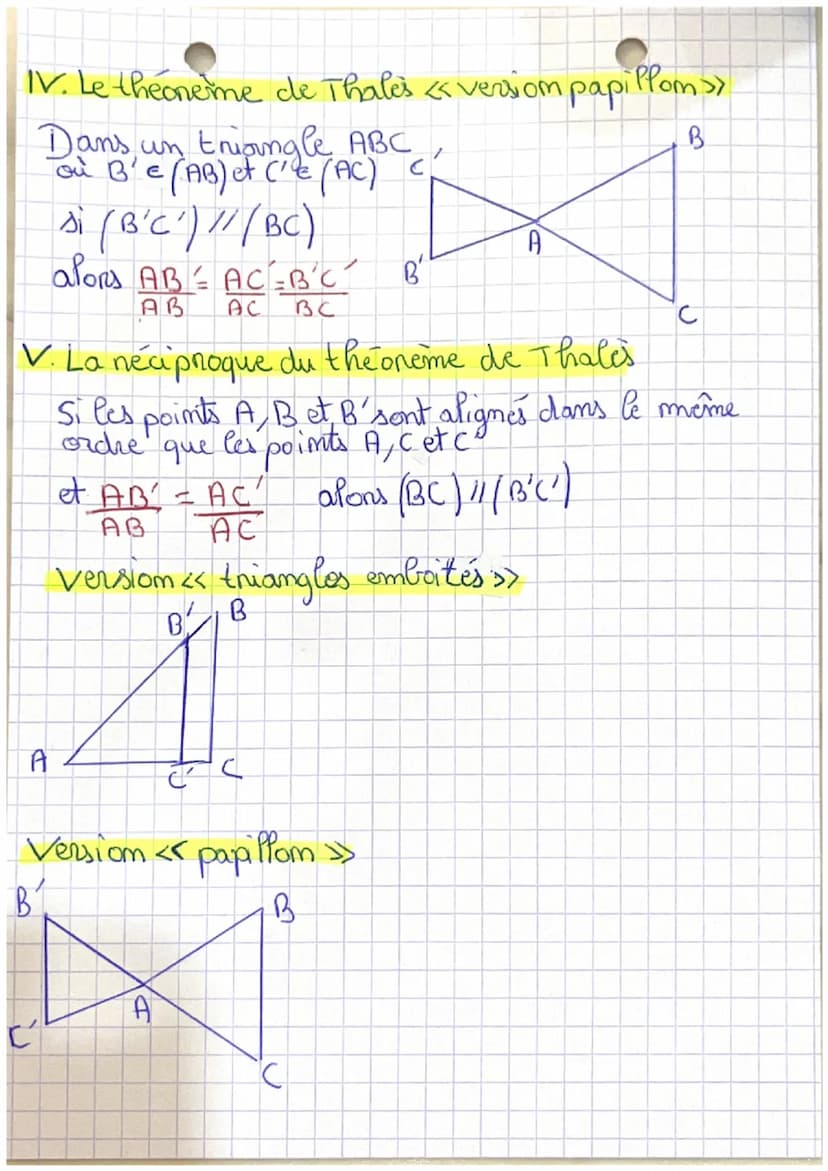 IV. Le théorème de Thalès << version papillon >>
Dans un triangle ABC
où B' ∈ (AB) et C' ∈ (AC)
si (B'C') // (BC)
alors AB'/AB = AC'/AC = B'C'/BC
C'
B
A
B'
C
V. La réciproque du théorème de Thalès
Si les points A, B et B' sont alignés dans le même
ordre que les points A, C et C'
et AB'/AB = AC'/AC alors (BC) // (B'C')
Version << triangles emboîtés >>
B' B
A
C' C
Version << papillon >>
B' B
A
C'
C